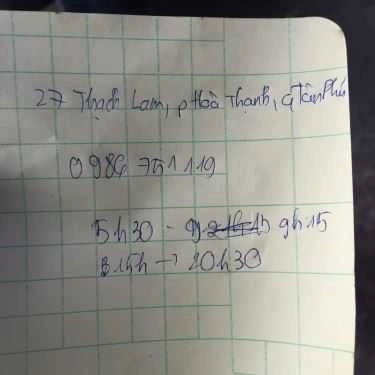 27 Thạch Lam, p Hoà Thạnh, q Tân Phú
0986 751 119
5h30 - 9h15
15h → 20h30